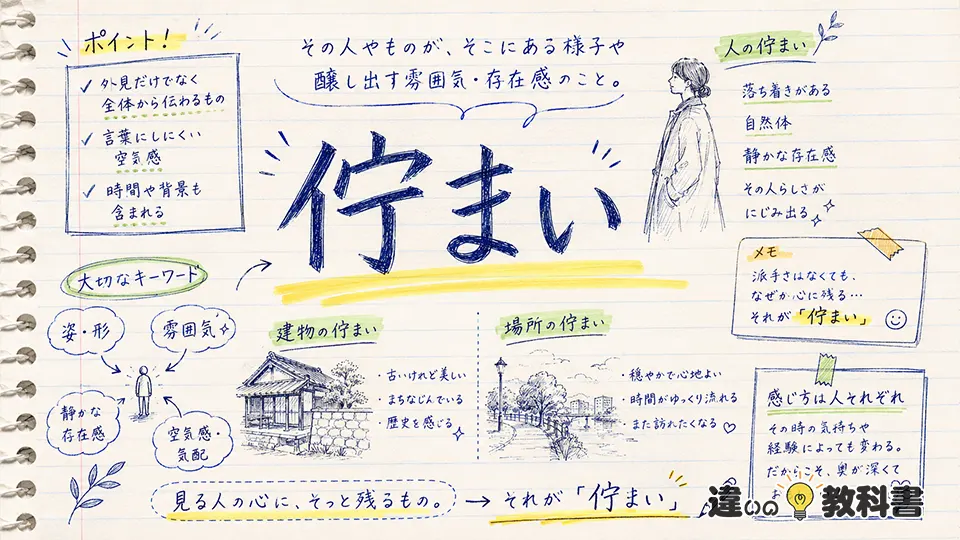 ポイント!
✓ 外見だけでなく
全体から伝わるもの
✓ 言葉にしにくい
空気感
✓ 時間や背景も
含まれる
その人やものが、そこにある様子や
醸し出す雰囲気・存在感のこと。
佇まい
人の佇まい
落ち着きがある
自然体
静かな存在感
その人らしさが
にじみ出る
メモ
派手さはなくても、
なぜか心に残る…
それが「佇まい」
大切なキーワード
姿・形
雰囲気
静かな
存在感
空気感・
気配
建物の佇まい
・古いけれど美しい
・まちなじんでいる
・歴史を感じる
場所の佇まい
・穏やかで心地よい
・時間がゆっくり流れる
・また訪れたくなる
感じ方は人それぞれ
その時の気持ちや
経験によっても変わる。
だからこそ、奥が深くて
お
見る人の心に、そっと残るもの。
→ それが「佇まい」
違いの教科書